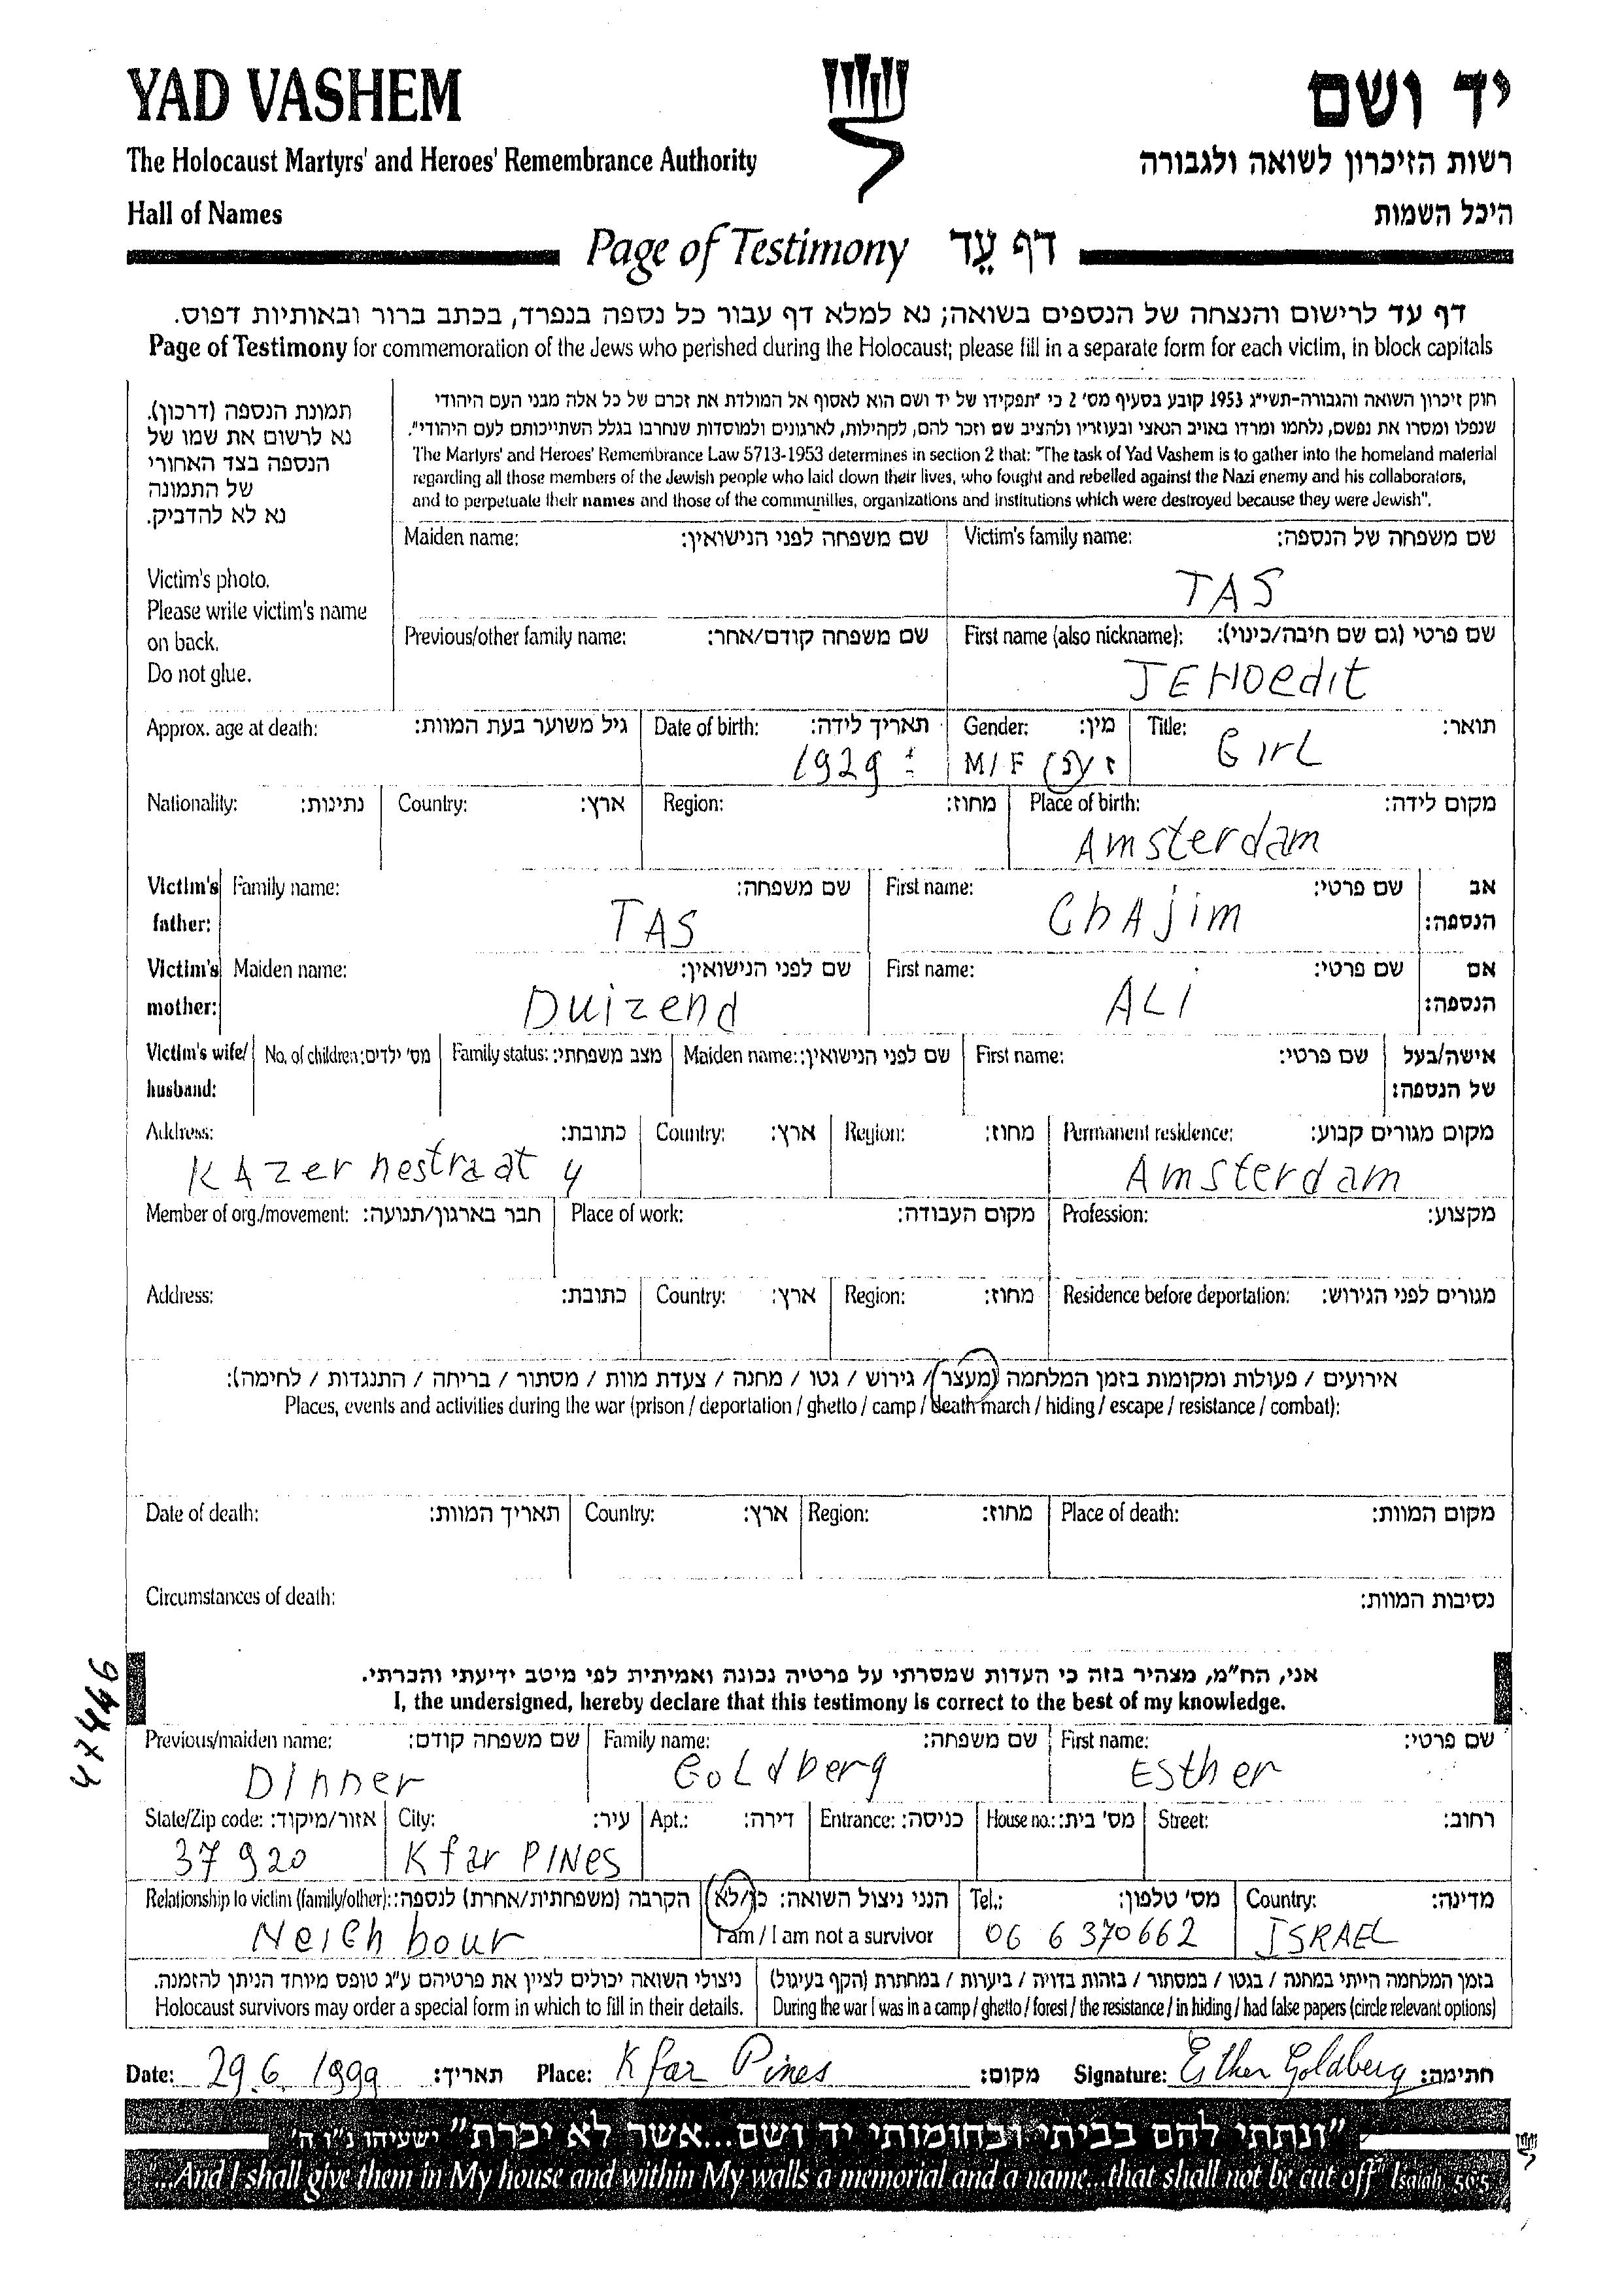 YAD VASHEM
יד ושם
The Holocaust Martyrs' and Heroes' Remembrance Authority
רשות הזיכרון לשואה ולגבורה
Hall of Names
היכל השמות
Page of Testimony דף עֵד
דף עד לרישום והנצחה של הנספים בשואה; נא למלא דף עבור כל נספה בנפרד, בכתב ברור ובאותיות דפוס.
Page of Testimony for commemoration of the Jews who perished during the Holocaust; please fill in a separate form for each victim, in block capitals
תמונת הנספה (דרכון).
נא לרשום את שמו של
הנספה בצד האחורי
של התמונה
נא לא להדביק.
Victim's photo.
Please write victim's name
on back.
Do not glue.
חוק זיכרון השואה והגבורה-תשי"ג 1953 קובע בסעיף מס' 2 כי "תפקידו של יד ושם הוא לאסוף אל המולדת את זכרם של כל אלה מבני העם היהודי
שנפלו ומסרו את נפשם, נלחמו ומרדו באויב הנאצי ובעוזריו ולהציב שם וזכר להם, לקהילות, לארגונים ולמוסדות שנחרבו בגלל השתייכותם לעם היהודי".
The Martyrs' and Heroes' Remembrance Law 5713-1953 determines in section 2 that: "The task of Yad Vashem is to gather into the homeland material
regarding all those members of the Jewish people who laid down their lives, who fought and rebelled against the Nazi enemy and his collaborators,
and to perpetuate their names and those of the communities, organizations and institutions which were destroyed because they were Jewish".
Maiden name: שם משפחה לפני הנישואין: Victim's family name: שם משפחה של הנספה:
TAS
Previous/other family name: שם משפחה קודם/אחר: First name (also nickname): שם פרטי (גם שם חיבה/כינוי):
JEHOedit
Approx. age at death: גיל משוער בעת המוות: Date of birth: תאריך לידה: Gender: מין: Title: תואר:
1929 ± M/F ז/נ Girl
Nationality: נתינות: Country: ארץ: Region: מחוז: Place of birth: מקום לידה:
Amsterdam
Victim's father: Family name: שם משפחה: First name: שם פרטי: אב הנספה:
TAS ChAjim
Victim's mother: Maiden name: שם לפני הנישואין: First name: שם פרטי: אם הנספה:
Duizend ALi
Victim's wife/husband: No. of children: מס' ילדים: Family status: מצב משפחתי: Maiden name: שם לפני הנישואין: First name: שם פרטי: אישה/בעל של הנספה:
Address: כתובת: Country: ארץ: Region: מחוז: Permanent residence: מקום מגורים קבוע:
KAzernestraat 4 Amsterdam
Member of org./movement: חבר בארגון/תנועה: Place of work: מקום העבודה: Profession: מקצוע:
Address: כתובת: Country: ארץ: Region: מחוז: Residence before deportation: מגורים לפני הגירוש:
אירועים / פעולות ומקומות בזמן המלחמה (מעצר / גירוש / גטו / מחנה / צעדת מוות / מסתור / בריחה / התנגדות / לחימה):
Places, events and activities during the war (prison / deportation / ghetto / camp / death march / hiding / escape / resistance / combat):
Date of death: תאריך המוות: Country: ארץ: Region: מחוז: Place of death: מקום המוות:
Circumstances of death: נסיבות המוות:
47446
אני, הח"מ, מצהיר בזה כי העדות שמסרתי על פרטיה נכונה ואמיתית לפי מיטב ידיעתי והכרתי.
I, the undersigned, hereby declare that this testimony is correct to the best of my knowledge.
Previous/maiden name: שם משפחה קודם: Family name: שם משפחה: First name: שם פרטי:
Dinner GoLdberg Esther
State/Zip code: אזור/מיקוד: City: עיר: Apt.: דירה: Entrance: כניסה: House no.: מס' בית: Street: רחוב:
37920 Kfar PINes
Relationship to victim (family/other): הקרבה (משפחתית/אחרת) לנספה: הנני ניצול השואה: כן/לא Tel.: מס' טלפון: Country: מדינה:
I am / I am not a survivor
NeiGhbour 06 6370662 ISRAEL
ניצולי השואה יכולים לציין את פרטיהם ע"ג טופס מיוחד הניתן להזמנה. בזמן המלחמה הייתי במחנה / בגטו / במסתור / בזהות בדויה / ביערות / במחתרת (הקף בעיגול)
Holocaust survivors may order a special form in which to fill in their details. During the war I was in a camp / ghetto / forest / the resistance / in hiding / had false papers (circle relevant options)
Date: 29.6.1999 תאריך: Place: Kfar Pines מקום: Signature: Esther Goldberg חתימה:
"ונתתי להם בביתי ובחומותי יד ושם...אשר לא יכרת" ישעיהו נ"ו ה'
"...And I shall give them in My house and within My walls a memorial and a name...that shall not be cut off" Isaiah 56:5